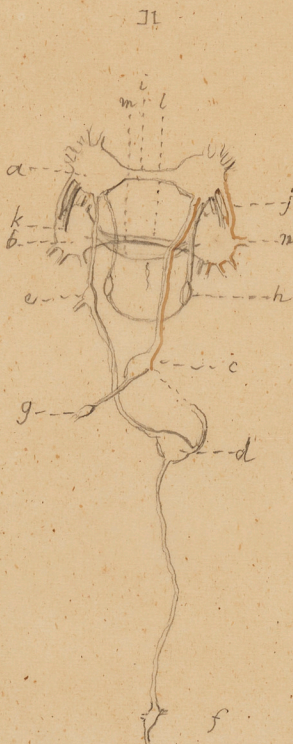 II
i
m l
a
j
k
b n
e h
c
g
d
f